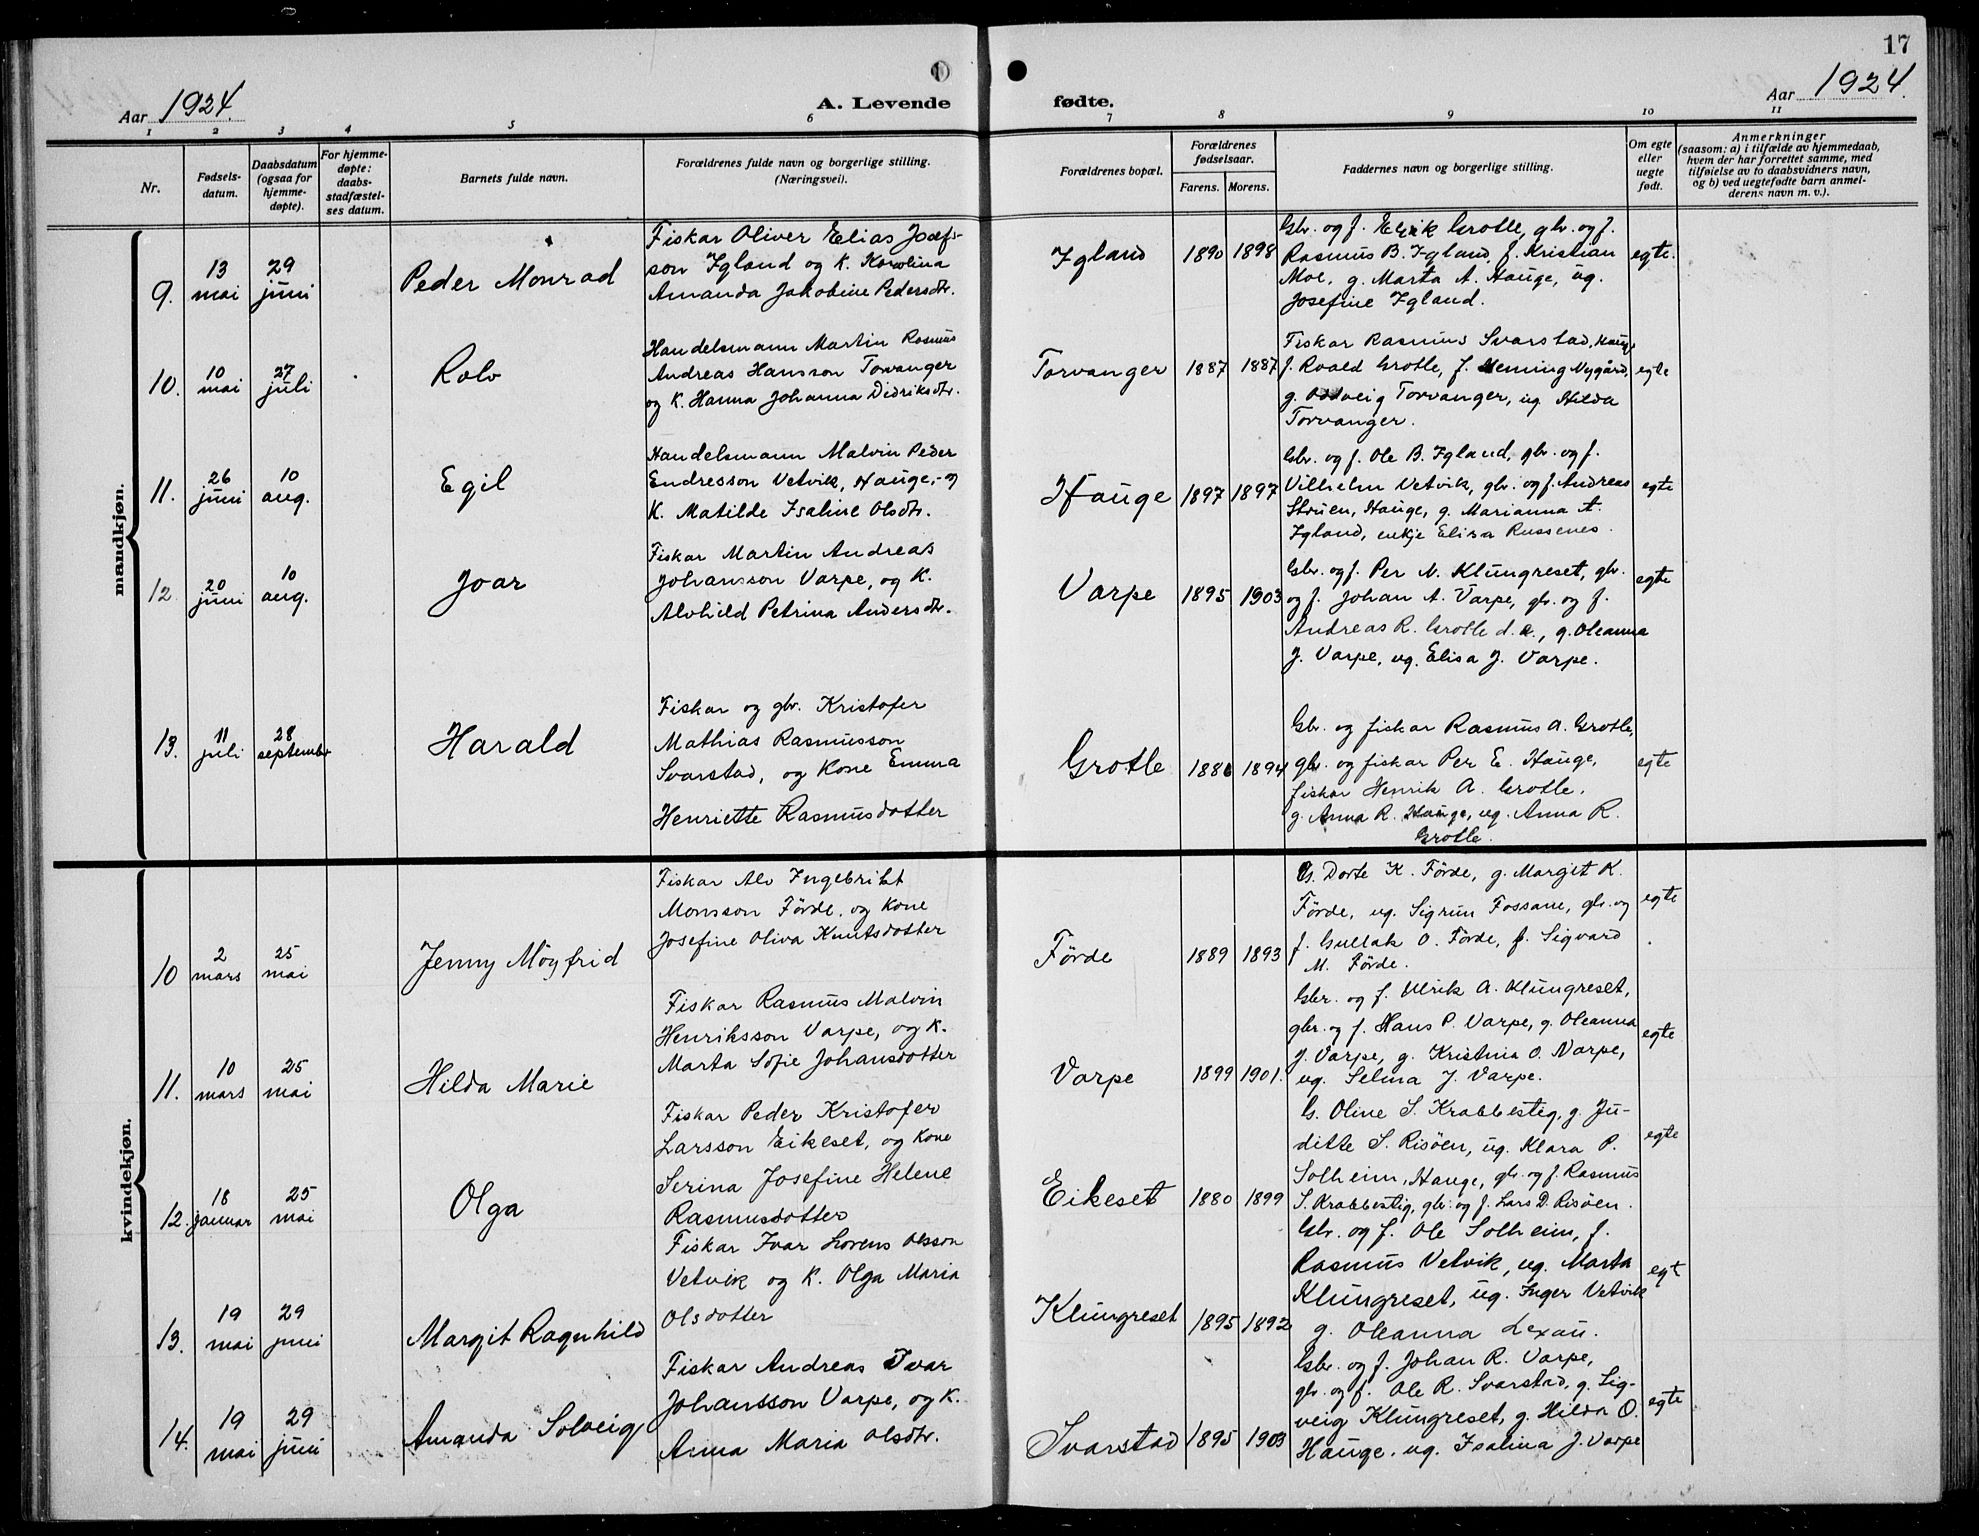 17
Aar 1924.
A. Levende
fødte.
Aar 1924.
1 2 3 4 5 6 7 8 9 10 11
Nr.
Fødsels-
datum.
Daabsdatum
(ogsaa for
hjemme-
døpte).
For hjemme-
døpte:
daabs-
stadfæstel-
ses datum.
Barnets fulde navn.
Forældrenes fulde navn og borgerlige stilling.
(Næringsvei).
Forældrenes bopæl.
Forældrenes
fødselsaar.
Farens. Morens.
Faddernes navn og borgerlige stilling.
Om egte
eller
uegte
født.
Anmerkninger
(saasom: a) i tilfælde av hjemmedaab,
hvem der har forrettet samme, med
tilføielse av to daabsvidners navn,
og b) ved uegtefødte barn anmel-
derens navn m. v.).
mandkjøn.
9.
13
mai
29
juni
Peder Monrad
Fiskar Oliver Elias Josef-
son Igland og K. Karolina
Amanda Jakobine Pedersdtr.
Igland
1890 1898
Gbr. og f. Eirik Grotle, gbr. og f.
Rasmus B. Igland, f. Kristian
Moe, g. Marta A. Hauge, ug.
Josefine Igland.
egte.
10.
10
mai
27
juli
Rolv
Handelsmann Martin Rasmus
Andreas Hansson Torvanger
og K. Hanna Johanna Didriksdtr.
Torvanger
1887 1887
Fiskar Rasmus Svarstad, Hauge
f. Roald Grotle, f. Heming Nygård,
g. Oddveig Torvanger, ug. Hilda
Torvanger.
egte
11.
26
juni
10
aug.
Egil
Handelsmann Malvin Peder
Endresson Vetvik, Hauge, og
K. Matilde Isaline Olsdtr.
Hauge
1897 1897
Gbr. og f. Ole B. Igland, gbr. og f.
Vilhelm Vetvik, gbr. og f. Andreas
Struen, Hauge, g. Marianna A.
Igland, enkje Elisa Russenes.
egte
12
20
juni
10
aug.
Joar
Fiskar Martin Andreas
Johansson Varpe, og K.
Alvhild Petrina Andersdtr.
Varpe
1895 1903
Gbr. og f. Per N. Klungreset, gbr.
og f. Johan A. Varpe, gbr. og f.
Andreas R. Grotle d. e., g. Oleanna
J. Varpe, ug. Elisa J. Varpe.
egte
13.
11
juli
28
september
Harald
Fiskar og gbr. Kristofer
Mathias Rasmusson
Svarstad, og Kone Emma
Henriette Rasmusdotter
Grotle
1886 1894
Gbr. og fiskar Rasmus A. Grotle,
gbr. og fiskar Per E. Hauge,
fiskar Henrik A. Grotle,
g. Anna R. Hauge, ug. Anna R.
Grotle.
egte
kvindekjøn.
10
2
mars
25
mai
Jenny Möyfrid
Fiskar Alv Ingebrikt
Monsson Förde, og Kone
Josefine Oliva Knutsdotter
Förde
1889 1893
G. Dorte K. Förde, g. Margit K.
Förde, ug. Sigrun Fossane, gbr. og
f. Gullak O. Förde, f. Sigvard
M. Förde.
egte
11.
10
mars
25
mai
Hilda Marie
Fiskar Rasmus Malvin
Henriksson Varpe, og K.
Marta Sofie Johansdotter
Varpe
1899 1901.
Gbr. og f. Ulrik A. Klungreset,
gbr. og f. Hans P. Varpe, g. Oleanna
J. Varpe, g. Kristina O. Varpe,
ug. Selma J. Varpe.
egte
12.
18
januar
25
mai
Olga
Fiskar Peder Kristofer
Larsson Eikeset, og Kone
Serina Josefine Helene
Rasmusdotter
Eikeset
1880 1899
G. Oline S. Krabbestig, g. Ju-
ditte S. Risöen, ug. Klara P.
Solheim, Hauge, gbr. og f. Rasmus
S. Krabbestig, gbr. og f. Lars D. Risöen.
egte
13.
19
mai
29
juni
Margit Ragnhild
Fiskar Ivar Lorens Olsson
Vetvik og K. Olga Maria
Olsdotter
Klungreset
1895 1892
Gbr. og f. Ole Solheim, f.
Rasmus Vetvik, ug. Marta
Klungreset, ug. Inger Vetvik
g. Oleanna Lexau.
egt
14.
19
mai
29
juni
Amanda Solveig
Fiskar Andreas Ivar
Johansson Varpe, og K.
Anna Maria Olsdtr.
Svarstad
1895 1903
Gbr. og f. Johan R. Varpe,
gbr. og f. Ole R. Svarstad, g. Sig-
veig Klungreset, g. Hilda O.
Hauge, ug. Isalina J. Varpe
egte